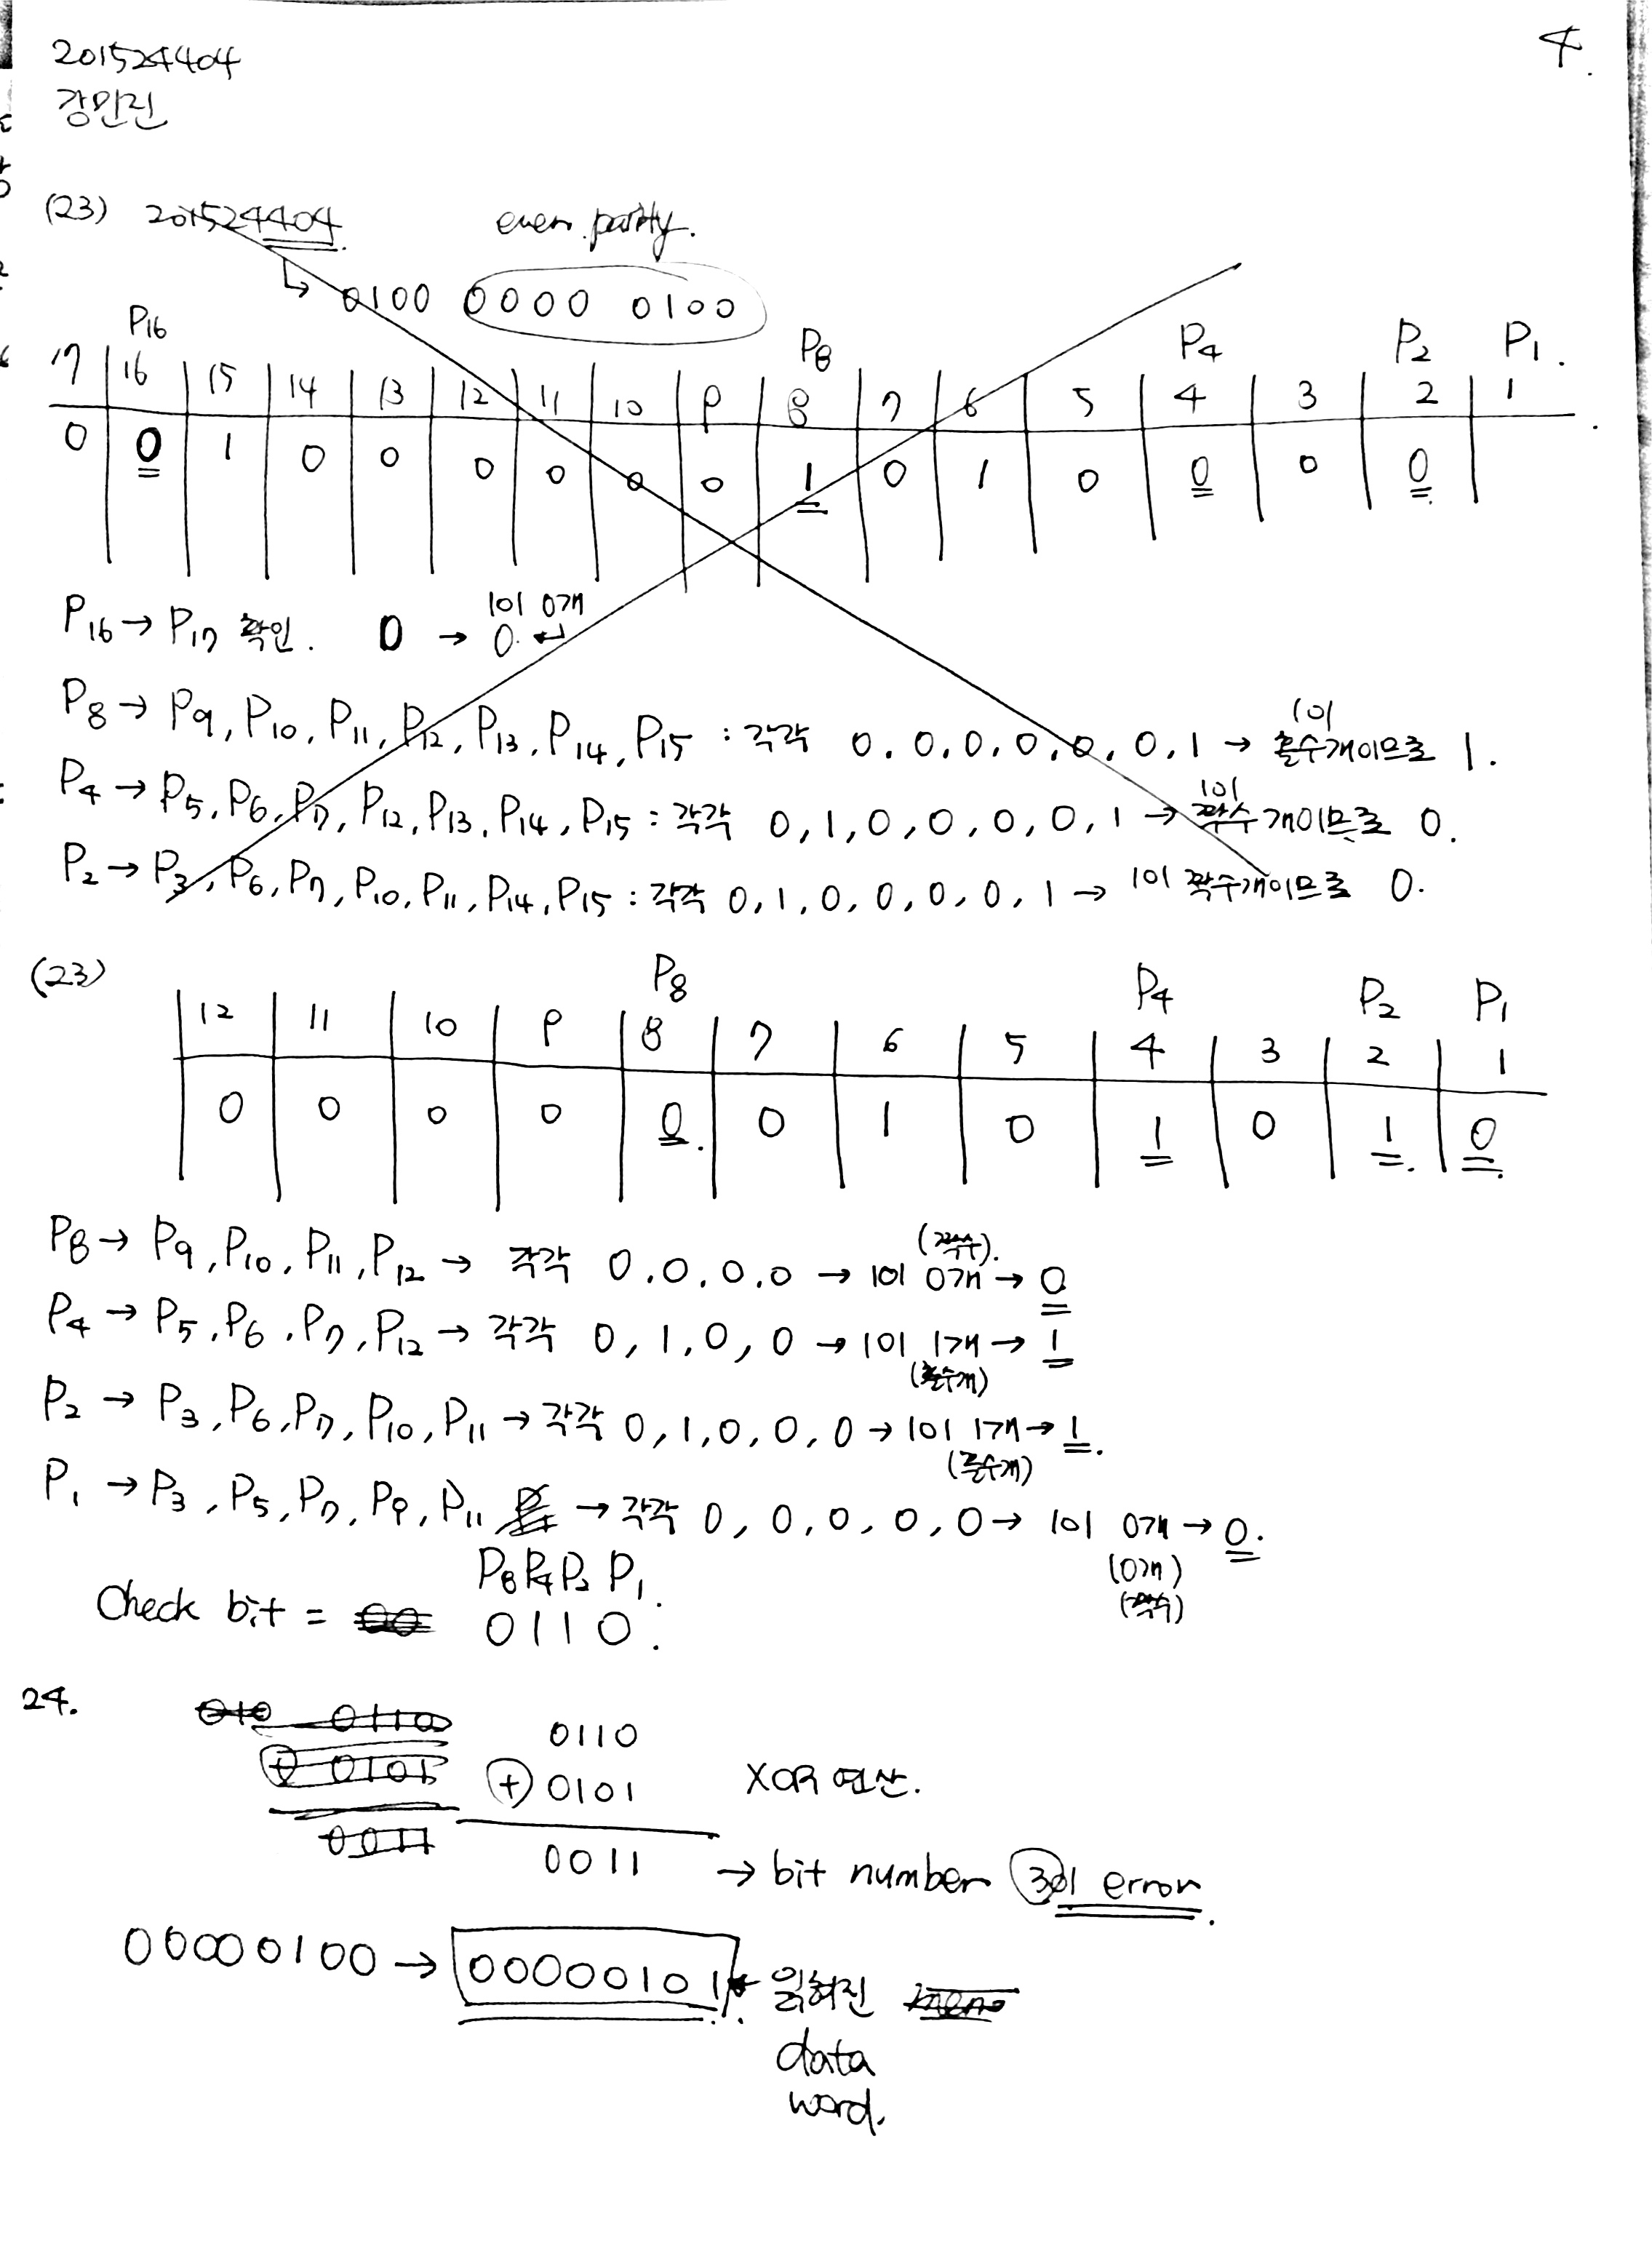 201524404
강민진
4.
(23) 201524404 even parity.
↳ 0100 0000 0100
P16 P8 P4 P2 P1.
17 16 15 14 13 12 11 10 9 8 7 6 5 4 3 2 1
0 0 1 0 0 0 0 0 0 1 0 1 0 0 0 0
P16 → P17 확인. 0 → 0. ↵ 1이 0개
P8 → P9, P10, P11, P12, P13, P14, P15 : 각각 0.0.0.0.0.0.1 → 1이 홀수개이므로 1.
P4 → P5, P6, P7, P12, P13, P14, P15 : 각각 0,1,0,0,0,0,1 → 1이 짝수개이므로 0.
P2 → P3, P6, P7, P10, P11, P14, P15 : 각각 0,1,0,0,0,0,1 → 1이 짝수개이므로 0.
(23)
P8 P4 P2 P1
12 11 10 9 8 7 6 5 4 3 2 1
0 0 0 0 0. 0 1 0 1 0 1. 0.
P8 → P9, P10, P11, P12 → 각각 0.0.0.0 → 1이 0개 → 0
(짝수).
P4 → P5, P6, P7, P12 → 각각 0,1,0,0 → 1이 1개 → 1
(홀수개)
P2 → P3, P6, P7, P10, P11 → 각각 0,1,0,0,0 → 1이 1개 → 1.
(홀수개)
P1 → P3, P5, P7, P9, P11 → 각각 0,0,0,0,0 → 1이 0개 → 0.
(0개)
(짝수)
P8 P4 P2 P1
Check bit = 00 0110.
24.
010 0110 0110
⊕ 0101 ⊕ 0101 XOR 연산.
0011 0011 → bit number 3이 error.
00000100 → 00000101 ← 읽혀진
data
word.